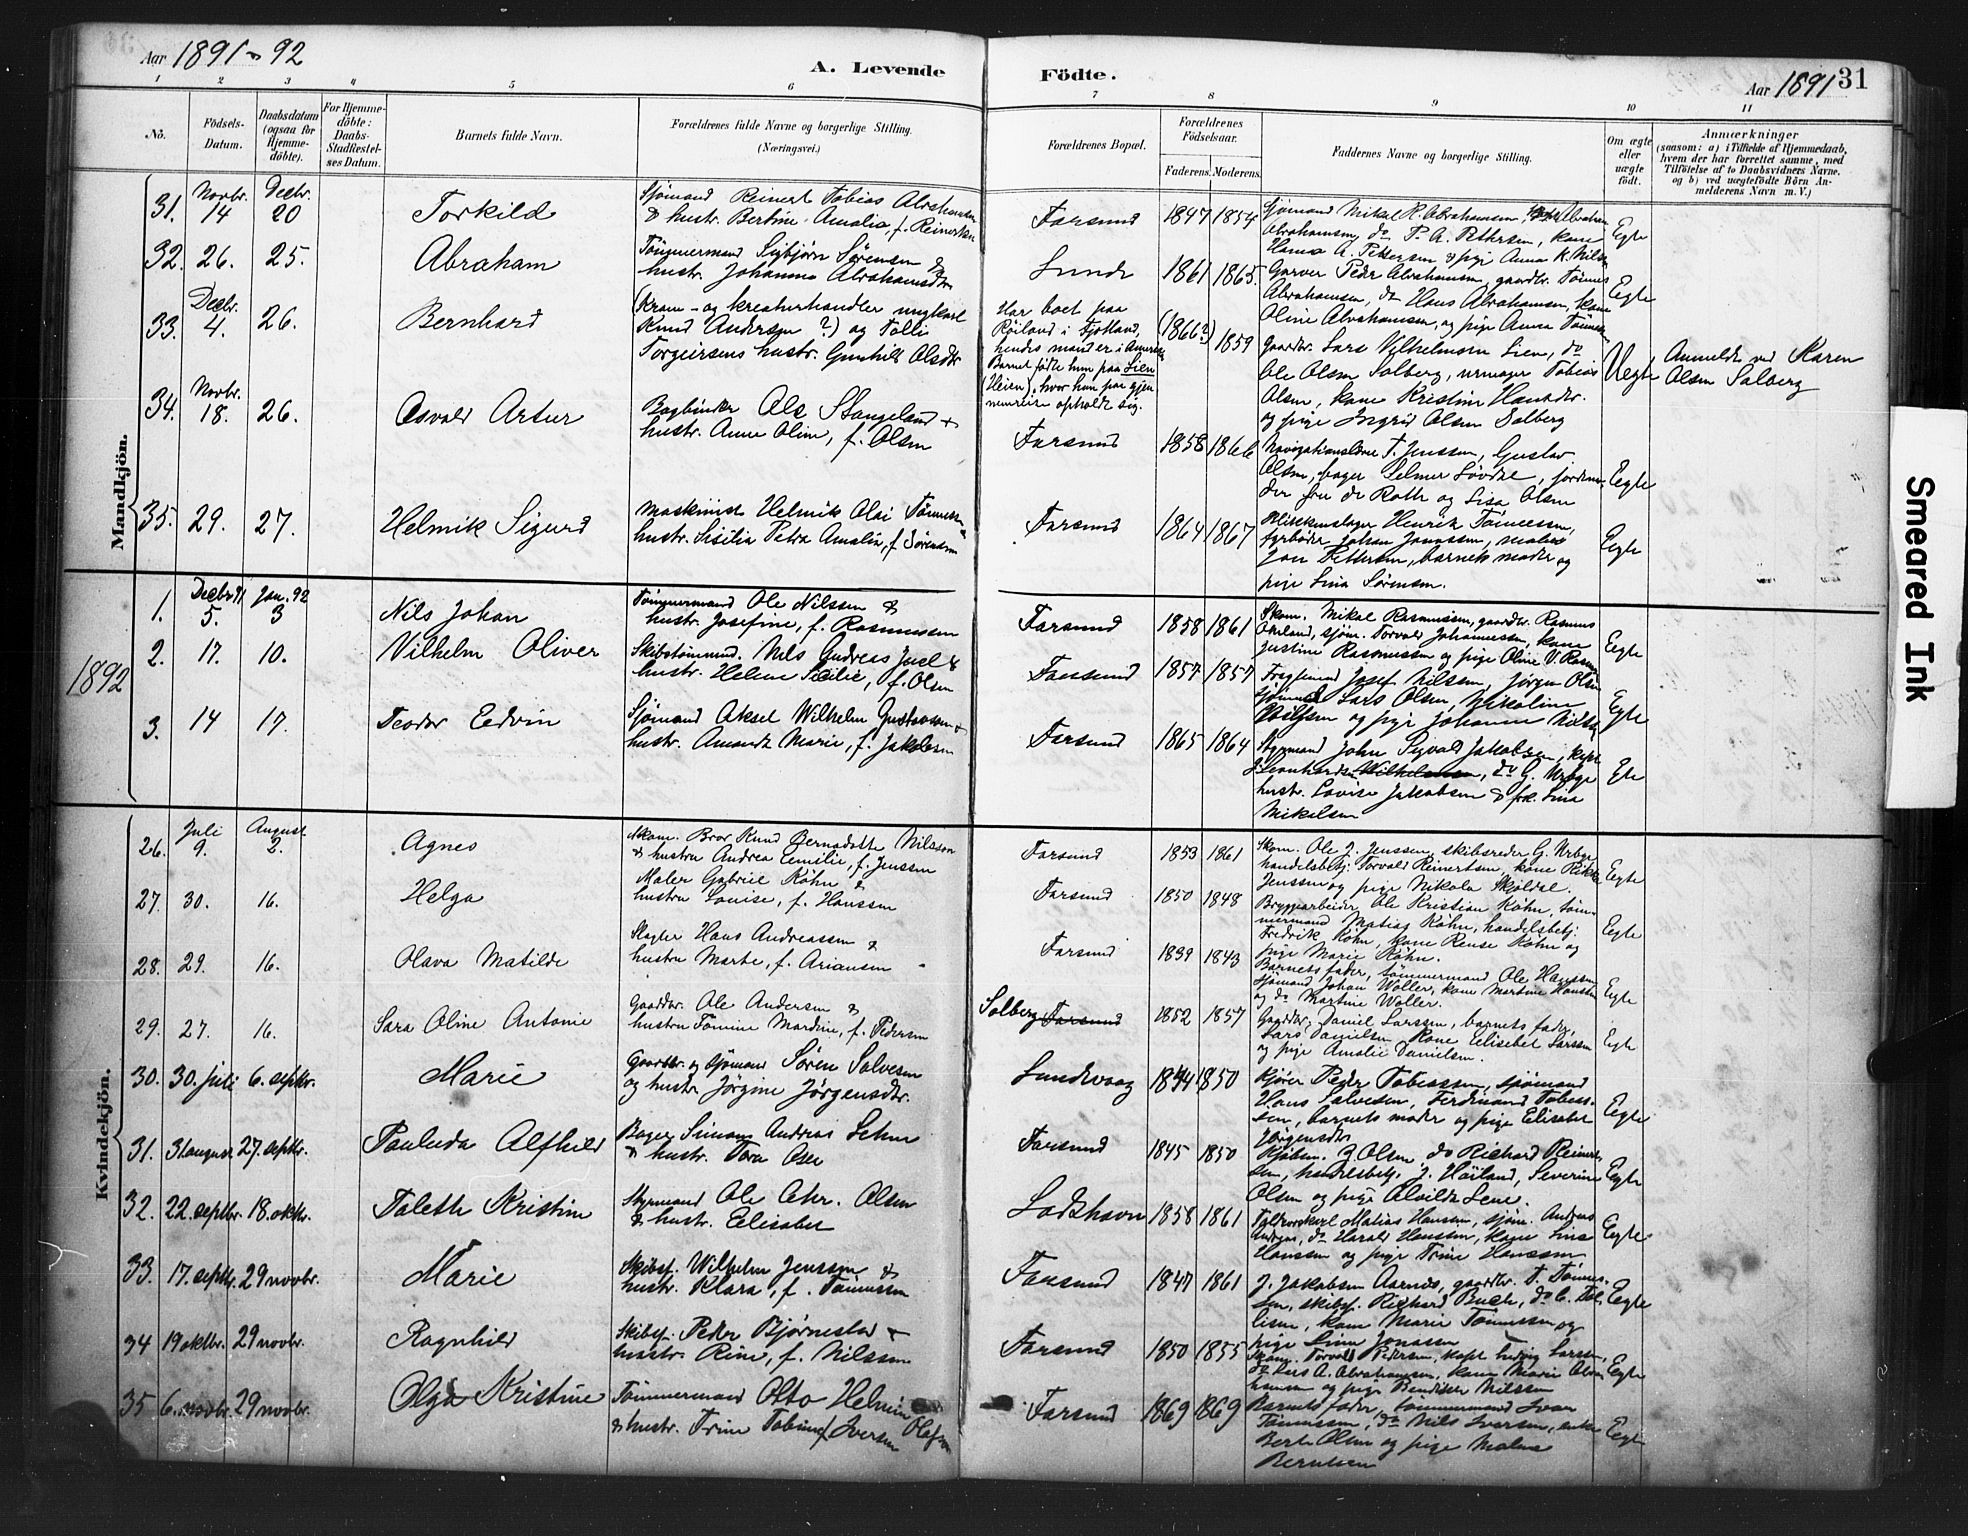 Aar 1891-92
A. Levende Födte.
Aar 1891
31
1 2 3 4 5 6 7 8 9 10 11
No.
Födsels-Datum.
Daabsdatum (ogsaa for Hjemme-döbte).
For Hjemme-döbte: Daabs-Stadfæstel-ses Datum.
Barnets fulde Navn.
Forældrenes fulde Navne og borgerlige Stilling.
(Næringsvei.)
Forældrenes Bopæl.
Forældrenes Födselsaar.
Faderens. Moderens.
Faddernes Navne og borgerlige Stilling.
Om ægte eller uægte födt.
Anmærkninger
(saasom: a) i Tilfælde af Hjemmedaab,
hvem der har forrettet samme, med
Tilföielse af to Daabsvidners Navne.
og b) ved uægtefödte Börn An-
melderens Navn m. V.)
Mandkjön.
31. Novbr. 14 Decbr. 20 Torkild
Sjømand Reinert Tobias Abrahamsen
& hustr. Bertine Amalia, f. Reinertsen
Farsund 1847 1854
Egte
32. 26. 25. Abraham
Tømmermand Sigbjørn Sørensen &
hustr. Johanne Abrahamsdtr
Lunde 1861 1865.
Garver Peder Abrahamsen, gaardbr. Tønnes
Abrahamsen, do Hans Abrahamsen, kone
Oline Abrahamsen, og pige Anna Tönnesen
Egte
33. Decbr. 4. 26. Bernhard
(Kram- og kreaturhandler ungkarl
Knud Andersen ?) og Tolli
Torgeirsens hustr. Gunhild Olsdtr.
Har boet paa
Röiland i Fjotland,
hendes mand er i Amerika
Barnet födte hun paa Lien
(Heien), hvor hun paa gjen
nemreise opholdt sig.
(1866?) 1859
Gaardbr. Lars Vilhelmsen Lien, do
Ole Olsen Solberg, urmager Tobias
Olsen, kone Kristine Hansdtr.
og pige Ingrid Olsen Solberg
Uegte
Anmeldt ved Karen
Olsen Solberg
34. Novbr. 18. 26. Osvald Artur
Bogbinder Ole Stangeland &
hustr. Anne Oline, f. Olsen
Farsund 1858 1866
Navigationslærer T. Jenssen, Gustav
Olsen, bager Selmer Lövdal, jordmo-
der fru de Roth og Lisa Olsen
Egte
35. 29. 27. Helmik Sigurd
Maskinist Helmik Olai Tønnessen
hustr. Sisilia Petra Amalia, f. Sørensen
Farsund 1864 1867
Blikkenslager Henrik Tönnessen,
fyrböder Johan Jonassen, maler
Jon Pettersen, barnets moder og
pige Lina Sørensen.
Egte
1892
1. Decbr. 91 5. Jan. 92 3 Nils Johan
Tømmermand Ole Nilssen &
hustr. Josefine, f. Rasmussen
Farsund 1858 1861
Skom. Mikal Rasmussen, gaardbr. Rasmus
Justine Rasmussen og pige Oline V. Rasm.
Egte
2. 17. 10. Vilhelm Oliver
Skibstømmd. Nils Andreas Juel &
hustr. Helene Sicilie, f. Olsen
Farsund 1857 1857
Josef Nilssen, Jörgen Olsen
sjømand Lars Olsen, Nikoline
Egte
3. 14 17. Teodor Edvin
Sjømand Aksel Wilhelm Gustavsen &
hustr. Amanda Marie, f. Jakobsen
Farsund 1865 1864
Styrmand John Sigvald Jakobsen, kapt.
J. Leonhardsen, do G. Urbye
hustr. Lovise Jakobsen & frk. Lina
Mikelsen
Egte
Kvindekjön.
26. Juli 9. August 2. Agnes
Skom. Bror Knud Bernadotte Nilsson
& hustru Andrea Emilie, f. Jenssen
Farsund 1853 1861
Skom. Ole J. Jenssen, skibsreder G. Urbye
handelsbetj. Torvald Reinertsen, kone Rikke
Jenssen og pige Nikola Skjöldal.
Egte
27. 30. 16. Helga
Maler Gabriel Köhn &
hustru Louise, f. Hanssen
Farsund 1850 1848
Bryggearbeider Ole Kristian Köhn, tøm-
mermand Matias Köhn, handelsbetj.
Fredrik Köhn, kone Rense Köhn og
pige Marie Köhn.
Egte
28. 29. 16. Olava Matilde
Slagter Hans Andreassen &
hustru Marte, f. Ariansen
Farsund 1839 1843
Barnets fader, tømmermand Ole Hanssen
sjømand Johan Woller, kone Martine Hanssen
og do Martine Woller.
Egte
29. 27. 16. Sara Oline Antonie
Gaardbr. Ole Andersen &
hustru Tomine Mardine, f. Pedersen
Solberg Farsund 1852 1857
Gaardbr. Daniel Larssen, barnets fader,
Lars Danielsen, kone Elisabet Larssen
og pige Amalie Danielsen.
Egte
30. 30. juli 6. septbr. Marie
Gaardbr. og sjømand Sören Salvesen
og hustr. Jörgine Jörgensdtr.
Lundevaag 1844 1850
Kjører Peder Tobiassen, sjömand
Hans Salvesen, Ferdinand Tobias-
sen, barnets moder og pige Elisabet
Jörgensdtr
Egte
31. 31 august 27. septbr. Pauleda Alfhild
Bager Simon Andreas Lehne
& hustr. Tora Oser
Farsund 1845 1850
Kjøbm. J. Olsen, do Richard Reinert-
sen, handelsbetj. J. Höiland, Severine
Olsen og pige Alvilde Lene.
Egte
32. 22. septbr. 18. oktbr. Taleth Kristine
Styrmand Ole Chr. Olsen
& hustr. Elisabet
Loshavn 1858 1861
Toldrorskarl Matias Hanssen, sjöm. Andreas
Andreas., do Harald Hanssen, kone Lina
Hanssen og pige Trine Hanssen
Egte
33. 17. septbr. 29 novbr. Marie
Skibsf. Wilhelm Jenssen &
hustr. Klara, f. Tönnessen
Farsund 1847 1861
J. Jakobsen Aarnes, gaardbr. T. Tønnes-
sen, skibsf. Richard Buch, do C. Tol-
lisen, kone Marie Tönnessen og
pige Lina Jonassen
Egte
34 19 oktbr. 29 novbr. Ragnhild
Skibsf. Peder Bjørnestad &
hustr. Rine, f. Nilssen
Farsund 1850 1855
Torvald Pedersen, kapt. Ludvig Larsen,
do Lars A. Abrahamsen, kone Marie Abra-
hamsen og pige Bendikte Nilssen
Egte
35 6. novbr. 29 novbr. Olga Kristine
Tømmermand Otto Helmin Olafsen
& hustr. Trine Tobine f. Iversen
Farsund 1869 1869
Barnets fader, tømmermand Ivar
Tönnessen, do Nils Iversen, enke
Berte Olsen og pige Malene
Berntsen
Egte
Smeared Ink